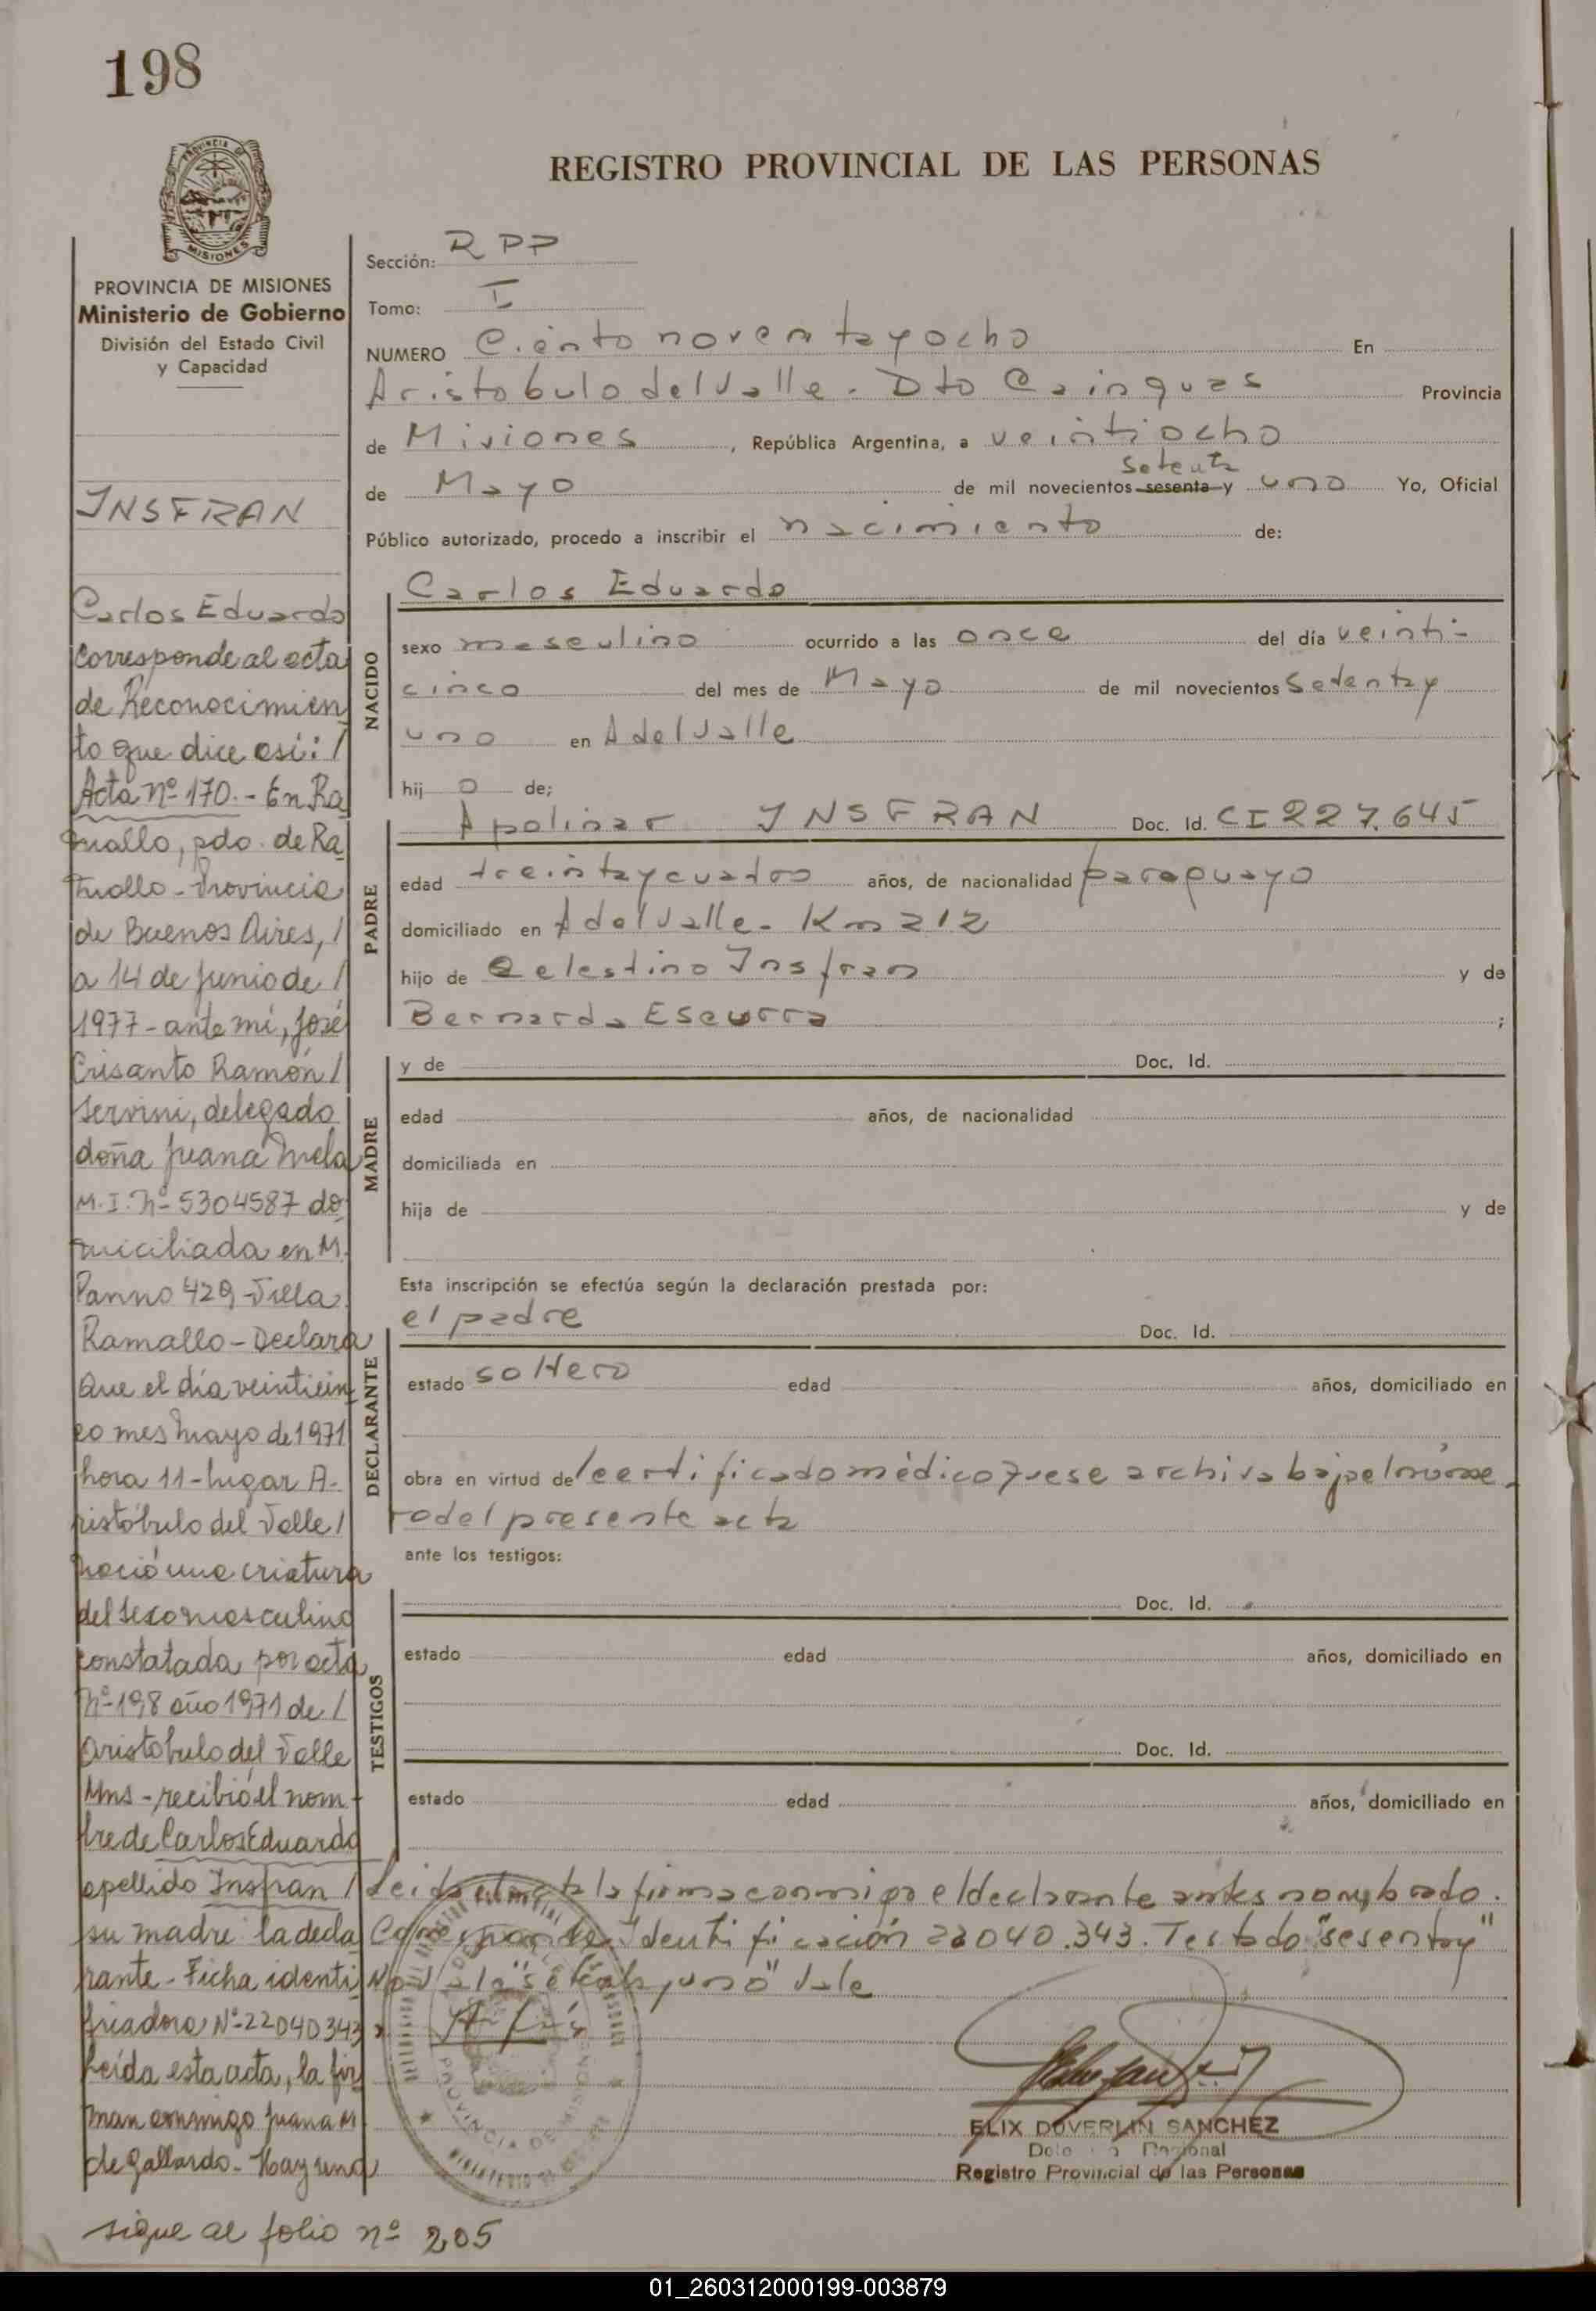 198
REGISTRO PROVINCIAL DE LAS PERSONAS
PROVINCIA DE MISIONES
Ministerio de Gobierno
División del Estado Civil
y Capacidad
INSFRAN
Carlos Eduardo
Corresponde al acta
de Reconocimien
to que dice así: /
Acta Nº 170.- En Ra
mallo, pdo. de Ra
mallo - Provincia
de Buenos Aires, /
a 14 de junio de /
1977 - ante mí, José
Crisanto Ramón /
Servini, delegado
doña Juana Mela
M.I. Nº 5304587 do
miciliada en M.
Panno 429 - Villa
Ramallo - Declara
Que el día veinticin
co mes mayo de 1971
hora 11 - lugar A-
ristóbulo del Valle /
nació una criatura
del sexo masculino
constatada por acta
Nº 198 año 1971 de /
Aristobulo del Valle
Mns - recibió el nom-
bre de Carlos Eduardo
apellido Insfran /
su madre la decla
rante - Ficha identi
ficadora Nº 22040343
Leída esta acta, la fir
man conmigo Juana M
de Gallardo - Hay una
sigue al folio nº 205
Sección: RPP
Tomo: I
NUMERO Ciento noventa y ocho En
Aristobulo del Valle - Dto Cainguas Provincia
de Misiones, República Argentina, a veintiocho
setenta
de Mayo de mil novecientos sesenta y uno Yo, Oficial
Público autorizado, procedo a inscribir el nacimiento de:
NACIDO
Carlos Eduardo
sexo masculino ocurrido a las once del día veinti-
cinco del mes de Mayo de mil novecientos setenta y
uno en A del Valle
hij o de;
PADRE
Apolinar INSFRAN Doc. Id. CI 227.645
edad treinta y cuatro años, de nacionalidad paraguayo
domiciliado en A del Valle - Km 212
hijo de Celestino Insfran y de
Bernarda Escurra ;
MADRE
y de Doc. Id.
edad años, de nacionalidad
domiciliada en
hija de y de
Esta inscripción se efectúa según la declaración prestada por:
DECLARANTE
el padre Doc. Id.
estado soltero edad años, domiciliado en
obra en virtud del certificado médico que se archiva bajo el núme-
ro del presente acta
ante los testigos:
TESTIGOS
Doc. Id.
estado edad años, domiciliado en
Doc. Id.
estado edad años, domiciliado en
Leida el acta la firma conmigo el declarante antes nombrado.
Corresponde Identificación 22040.343. Testado "sesenta y"
No vale "setenta y uno" Vale
ELIX DUVERLIN SANCHEZ
Regional
Registro Provincial de las Personas
01_260312000199-003879